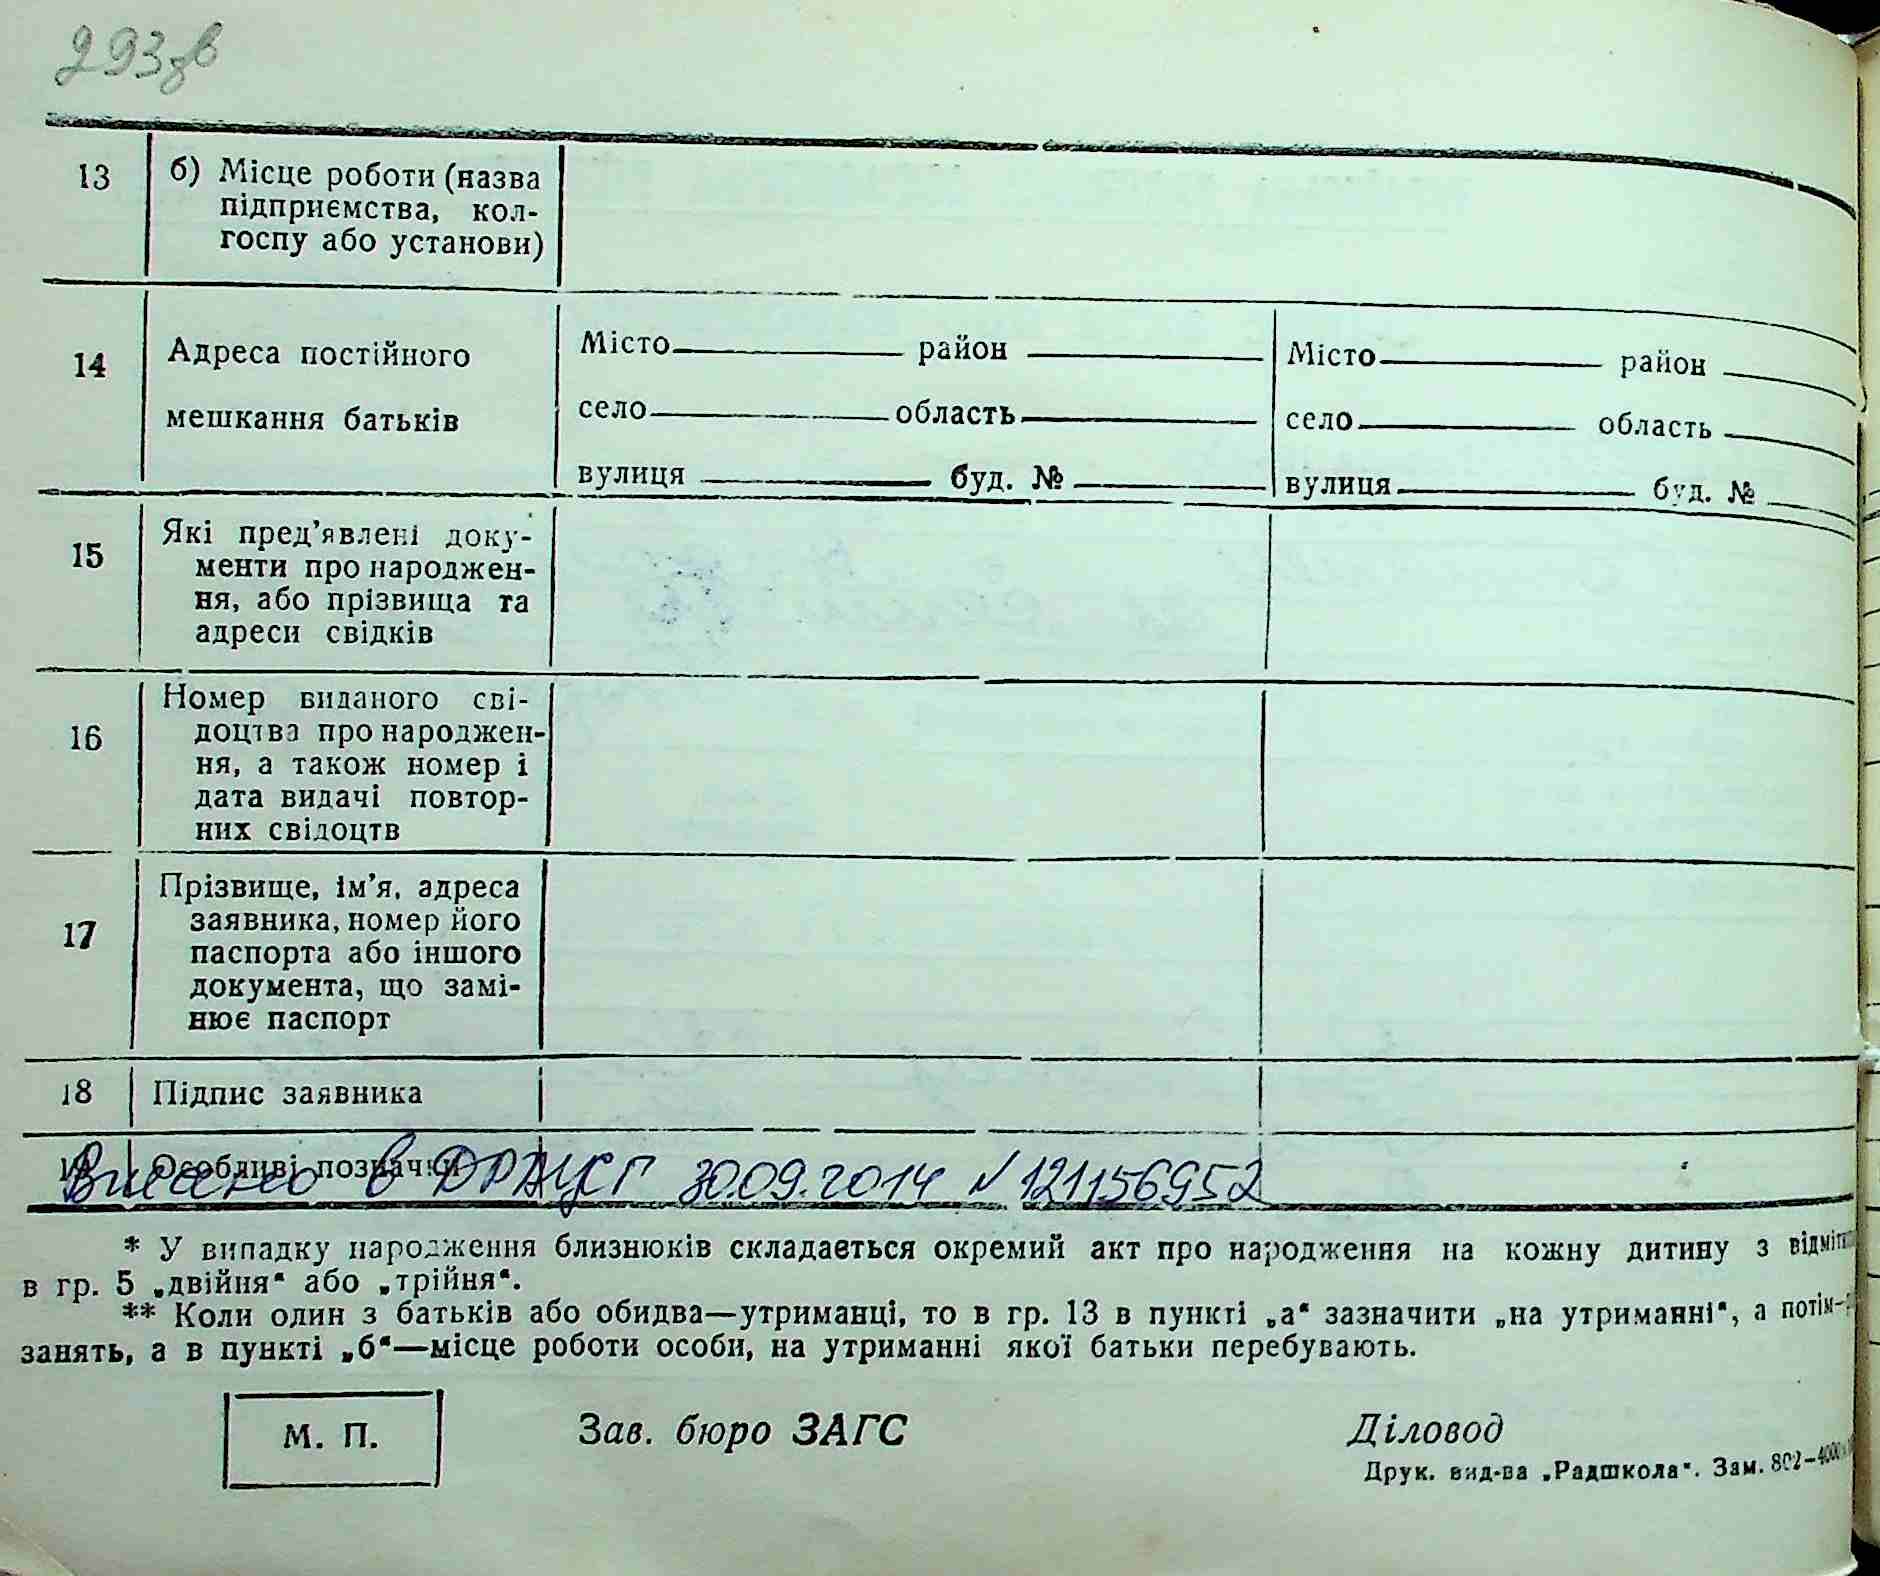 293зв
13 б) Місце роботи (назва
підприємства, кол-
госпу або установи)
14 Адреса постійного
мешкання батьків
Місто район
село область
вулиця буд. №
Місто район
село область
вулиця буд. №
15 Які пред’явлені доку-
менти про народжен-
ня, або прізвища та
адреси свідків
16 Номер виданого сві-
доцтва про народжен-
ня, а також номер і
дата видачі повтор-
них свідоцтв
17 Прізвище, ім’я, адреса
заявника, номер його
паспорта або іншого
документа, що замі-
нює паспорт
18 Підпис заявника
Особливі позначки
в ДРАЦСГ 30.09.2014 № 121156952
* У випадку народження близнюків складається окремий акт про народження на кожну дитину з
в гр. 5 „двійня“ або „трійня“.
** Коли один з батьків або обидва—утриманці, то в гр. 13 в пункті „а“ зазначити „на утриманні“, а потім—
занять, а в пункті „б“—місце роботи особи, на утриманні якої батьки перебувають.
М. П.
Зав. бюро ЗАГС
Діловод
Друк. вид-ва „Радшкола“. Зам. 802—4000